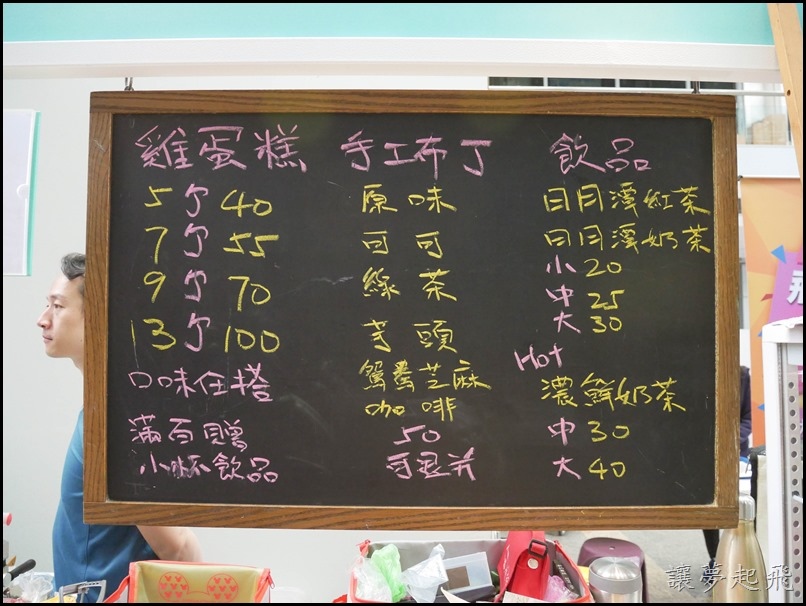 雞蛋糕
5勹 40
7勹 55
9勹 70
13勹 100
口味任搭
滿百贈
小杯飲品
手工布丁
原味
可可
綠茶
芋頭
鴛鴦芝麻
咖啡
50
可退卡
飲品
日月潭紅茶
日月潭奶茶
小 20
中 25
大 30
Hot
濃鮮奶茶
中 30
大 40
讓夢起飛